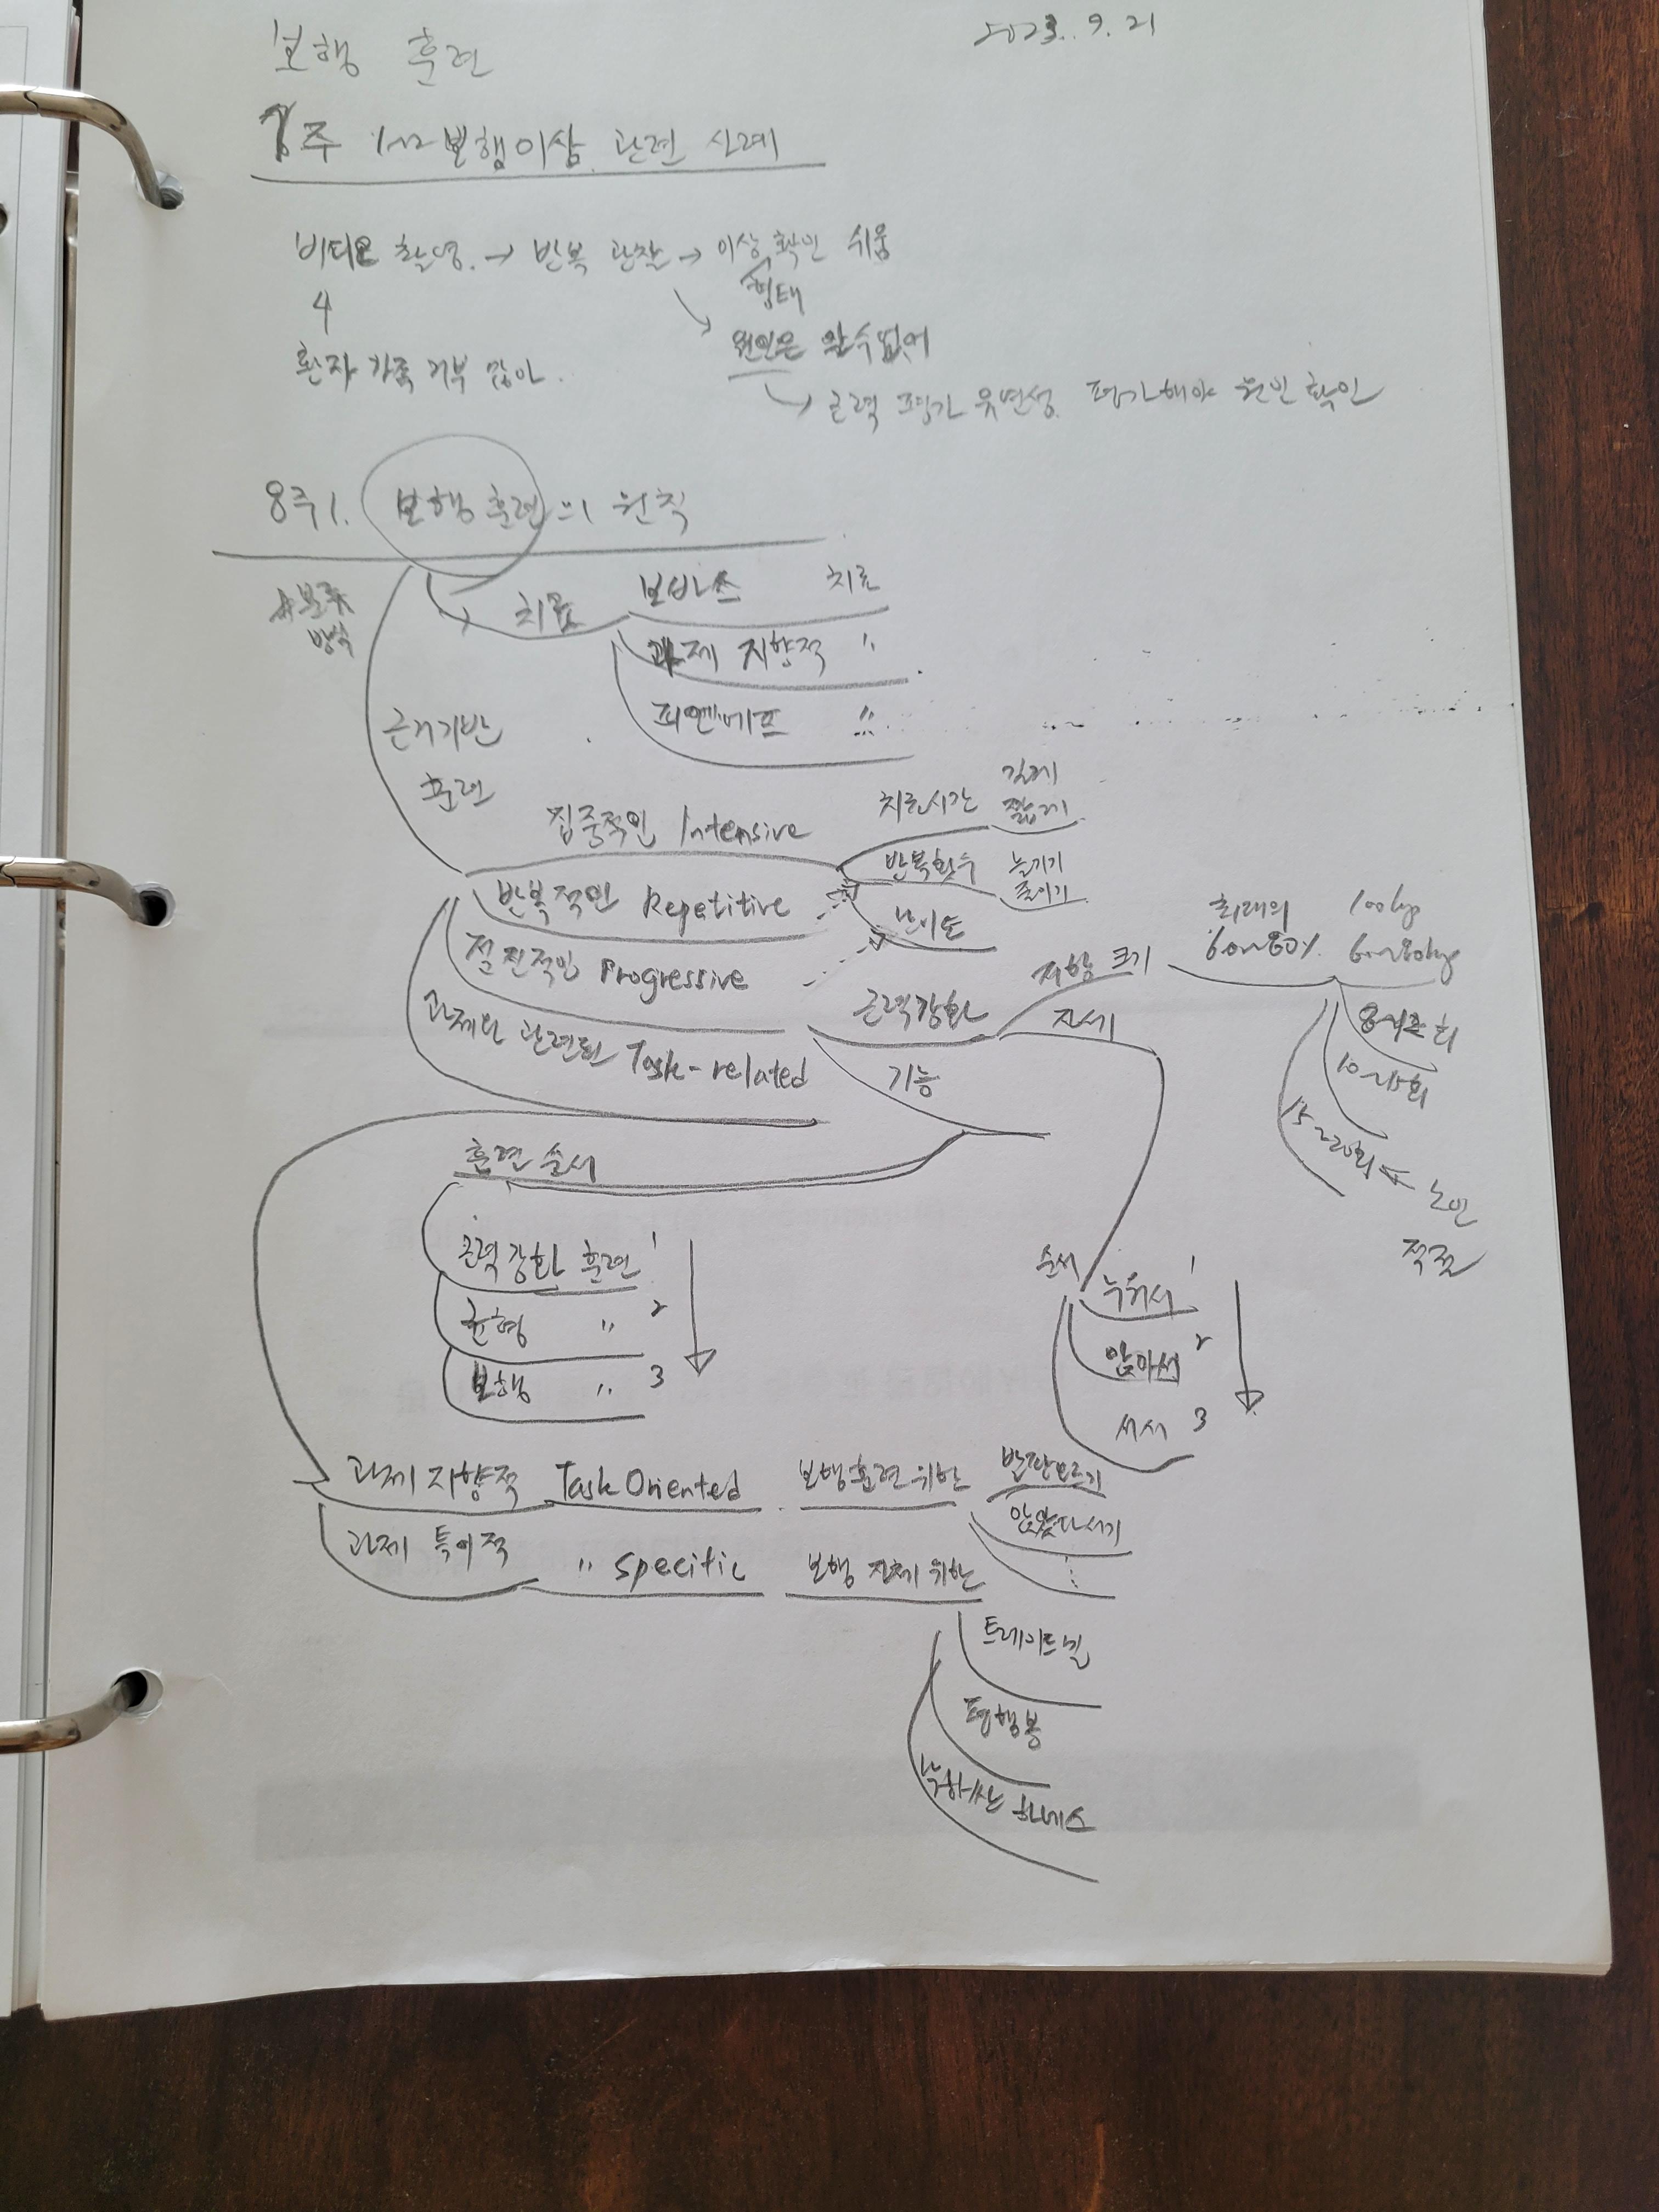 보행 훈련
2023. 9. 21
주 1~2 보행이상 관련 사례
비디오 촬영 → 반복 관찰 → 이상 확인 쉬움
형태
환자 가족 거부 많아.
원인은 알수없어
근력 평가 유연성 평가해야 원인 확인
8주1. 보행훈련의 원칙
*분류
방식
치료
보바스 치료
과제 지향적 "
피엔에프 "
근거기반
훈련
집중적인 Intensive
치료시간
길게
짧게
반복적인 Repetitive
반복횟수
늘리기
줄이기
난이도
점진적인 Progressive
과제와 관련된 Task-related
근력강화
저항 크기
최대의
60~80%
100kg
60~80kg
자세
기능
8~12회
10~15회
15~20회 ← 노인
적절
훈련 순서
근력강화 훈련 1
균형 " 2
보행 " 3
순서
누워서 1
앉아서 2
서서 3
과제 지향적 Task Oriented 보행훈련 위한
발판오르기
앉았다서기
과제 특이적 " specific 보행 자체 위한
트레이드밀
평행봉
하네스